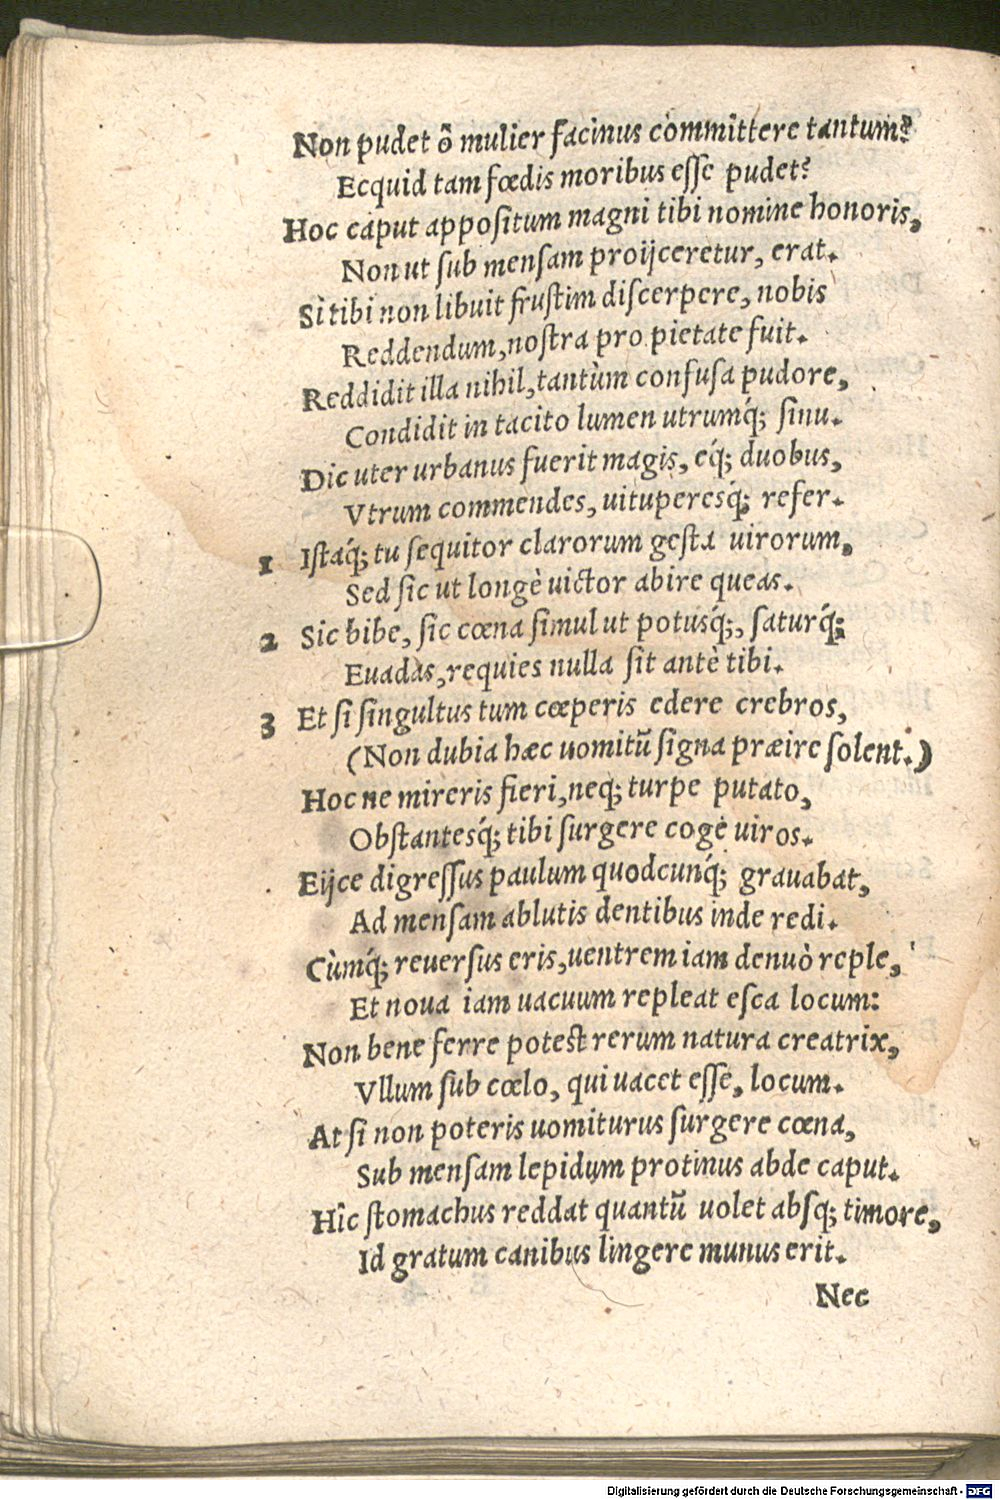 Non pudet ô mulier facinus committere tantum?
Ecquid tam fœdis moribus esse pudet?
Hoc caput appositum magni tibi nomine honoris,
Non ut sub mensam proijceretur, erat.
Si tibi non libuit frustim discerpere, nobis
Reddendum, nostra pro pietate fuit.
Reddidit illa nihil, tantùm confusa pudore,
Condidit in tacito lumen utrumq́; sinu.
Dic uter urbanus fuerit magis, eq́; duobus,
Vtrum commendes, uituperesq́; refer.
1 Istaq́; tu sequitor clarorum gesta uirorum,
Sed sic ut longè uictor abire queas.
2 Sic bibe, sic cœna simul ut potusq́;, saturq́;
Euadas, requies nulla sit antè tibi.
3 Et si singultus tum cœperis edere crebros,
(Non dubia hæc uomitũ signa præire solent.)
Hoc ne mireris fieri, neq; turpe putato,
Obstantesq́; tibi surgere coge uiros.
Eijce digressus paulum quodcunq́; grauabat,
Ad mensam ablutis dentibus inde redi.
Cùmq́; reuersus eris, uentrem iam denuò reple,
Et noua iam uacuum repleat esca locum:
Non bene ferre potest rerum natura creatrix,
Vllum sub cœlo, qui uacet esse, locum.
At si non poteris uomiturus surgere cœna,
Sub mensam lepidum protinus abde caput.
Hîc stomachus reddat quantũ uolet absq; timore,
Id gratum canibus lingere munus erit.
Nec
Digitalisierung gefördert durch die Deutsche Forschungsgemeinschaft - DFG